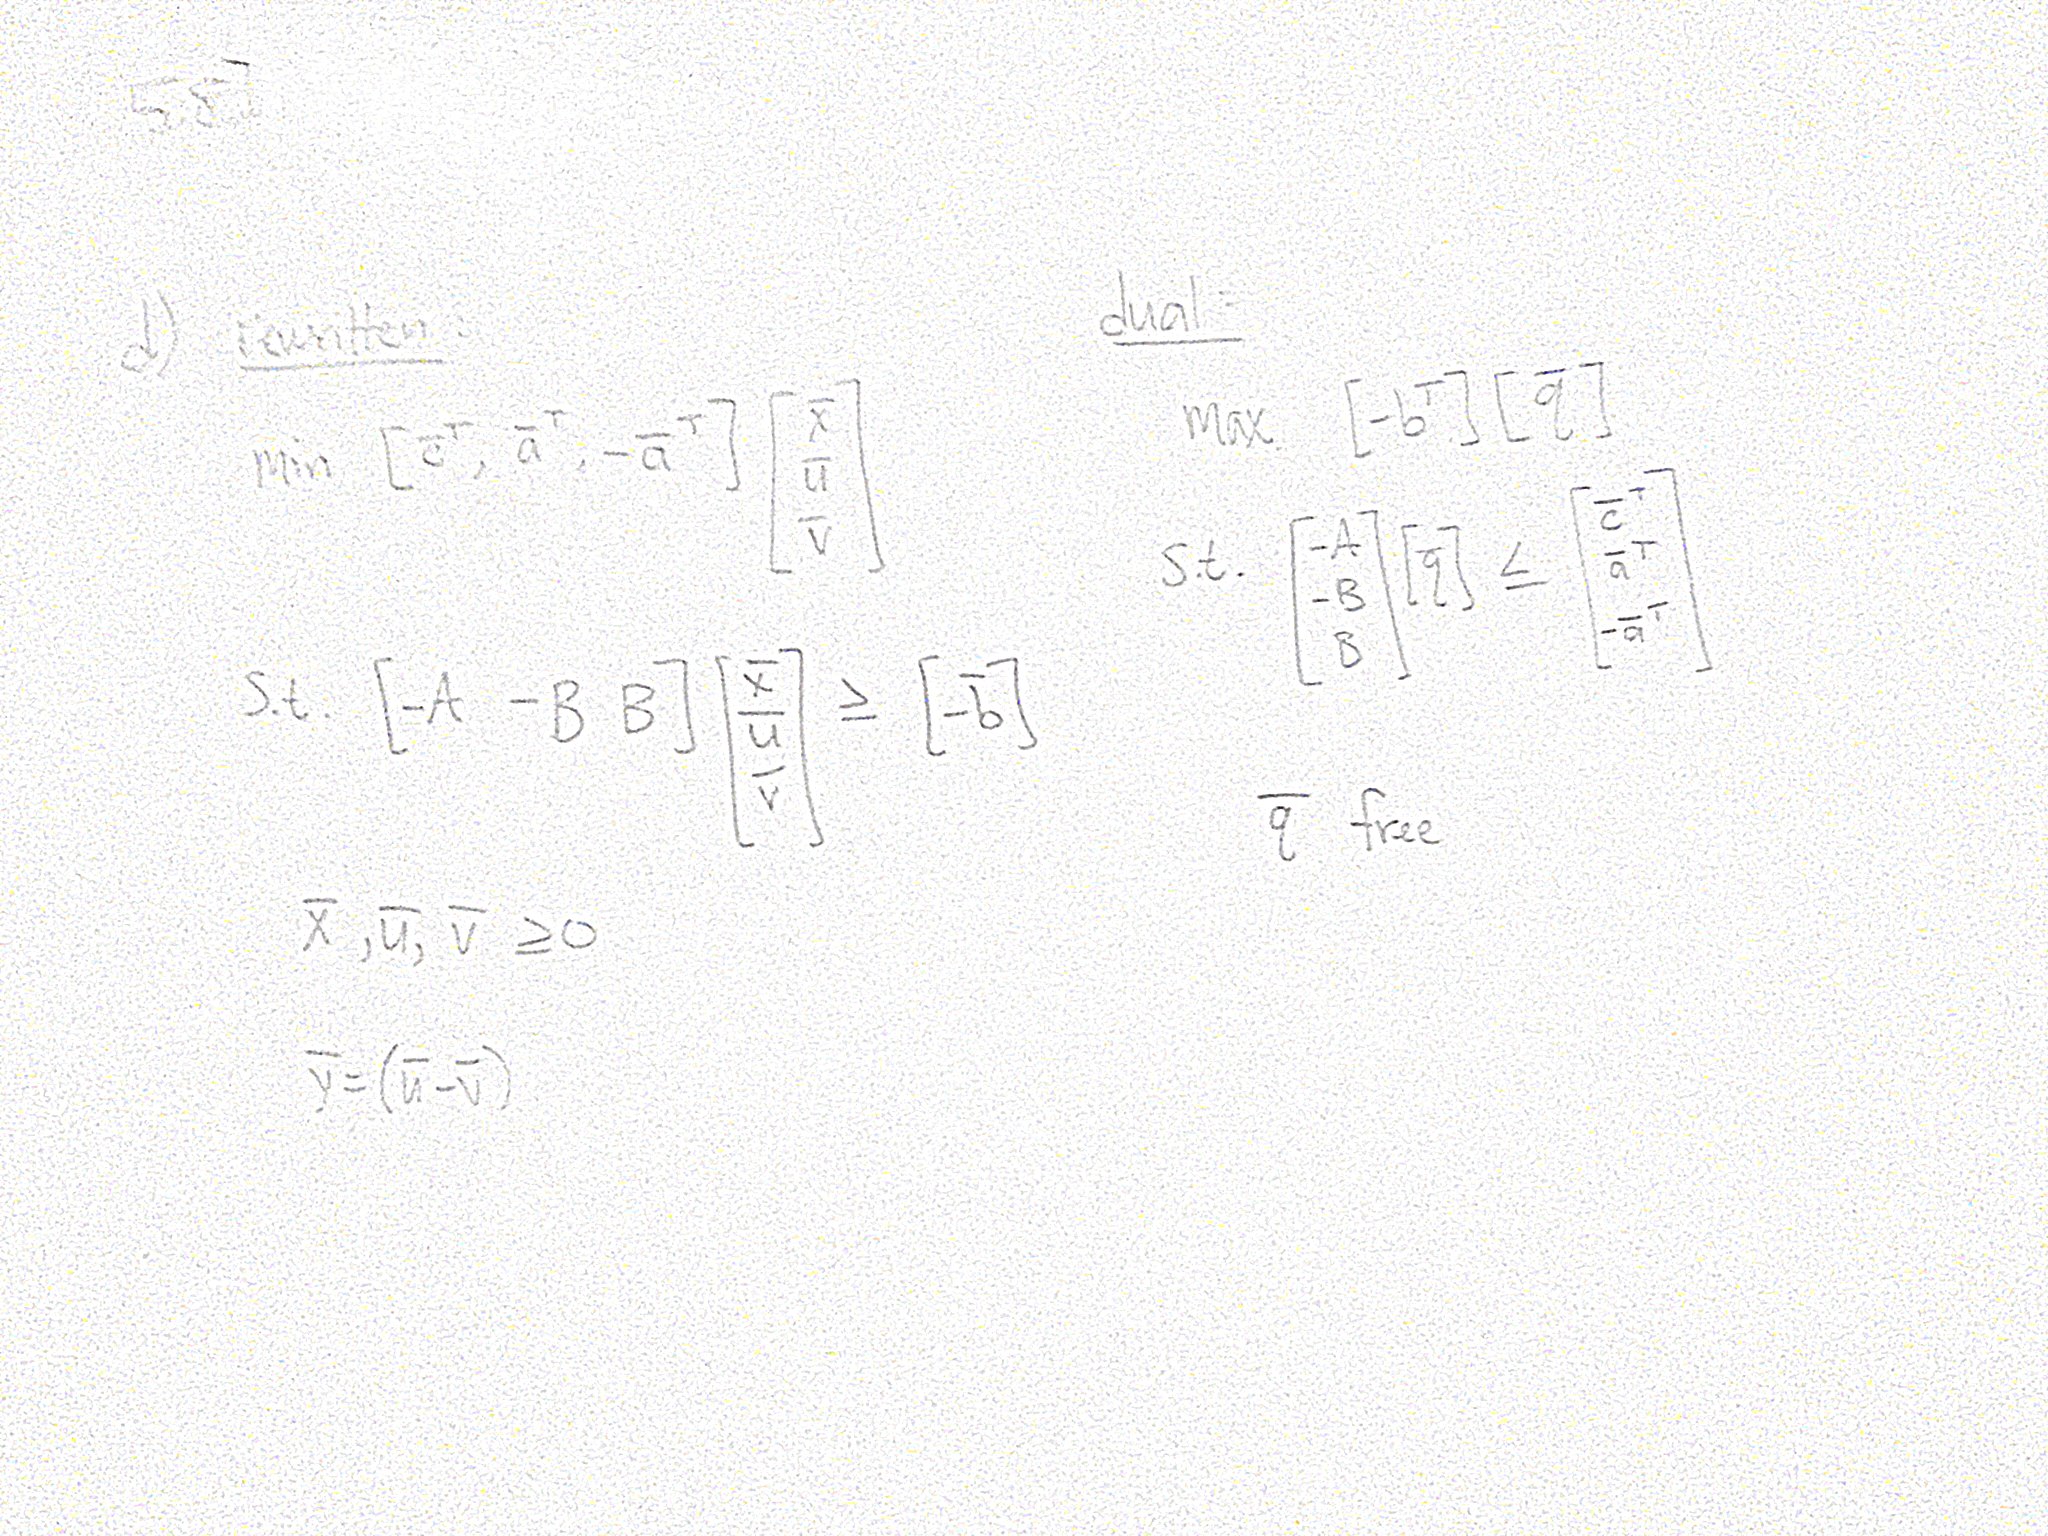 5.8
d) rewritten:
min [c̄ᵀ, āᵀ, -āᵀ] [x̄ ū v̄]
s.t. [-A -B B] [x̄ ū v̄] ≥ [-b̄]
x̄, ū, v̄ ≥ 0
ȳ = (ū - v̄)
dual:
max [-bᵀ] [q̄]
s.t. [-A -B B] [q̄] ≤ [c̄ᵀ āᵀ -āᵀ]
q̄ free